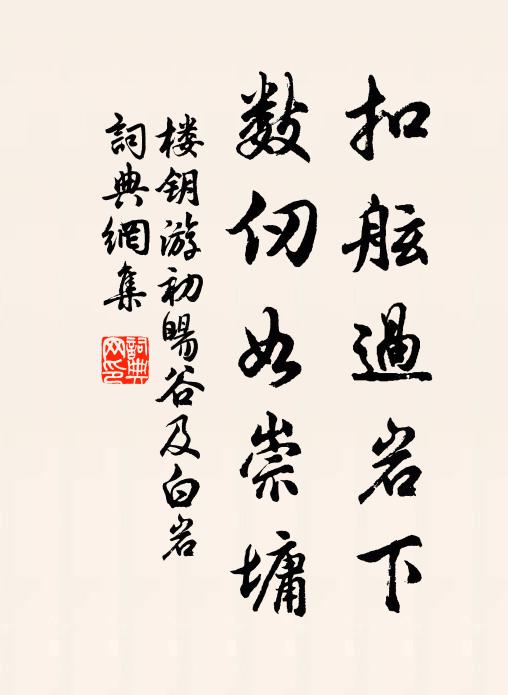 扣舷過岩下
數仞如崇墉
楼钥游初暘谷及白岩
詞典網集
詞典網印